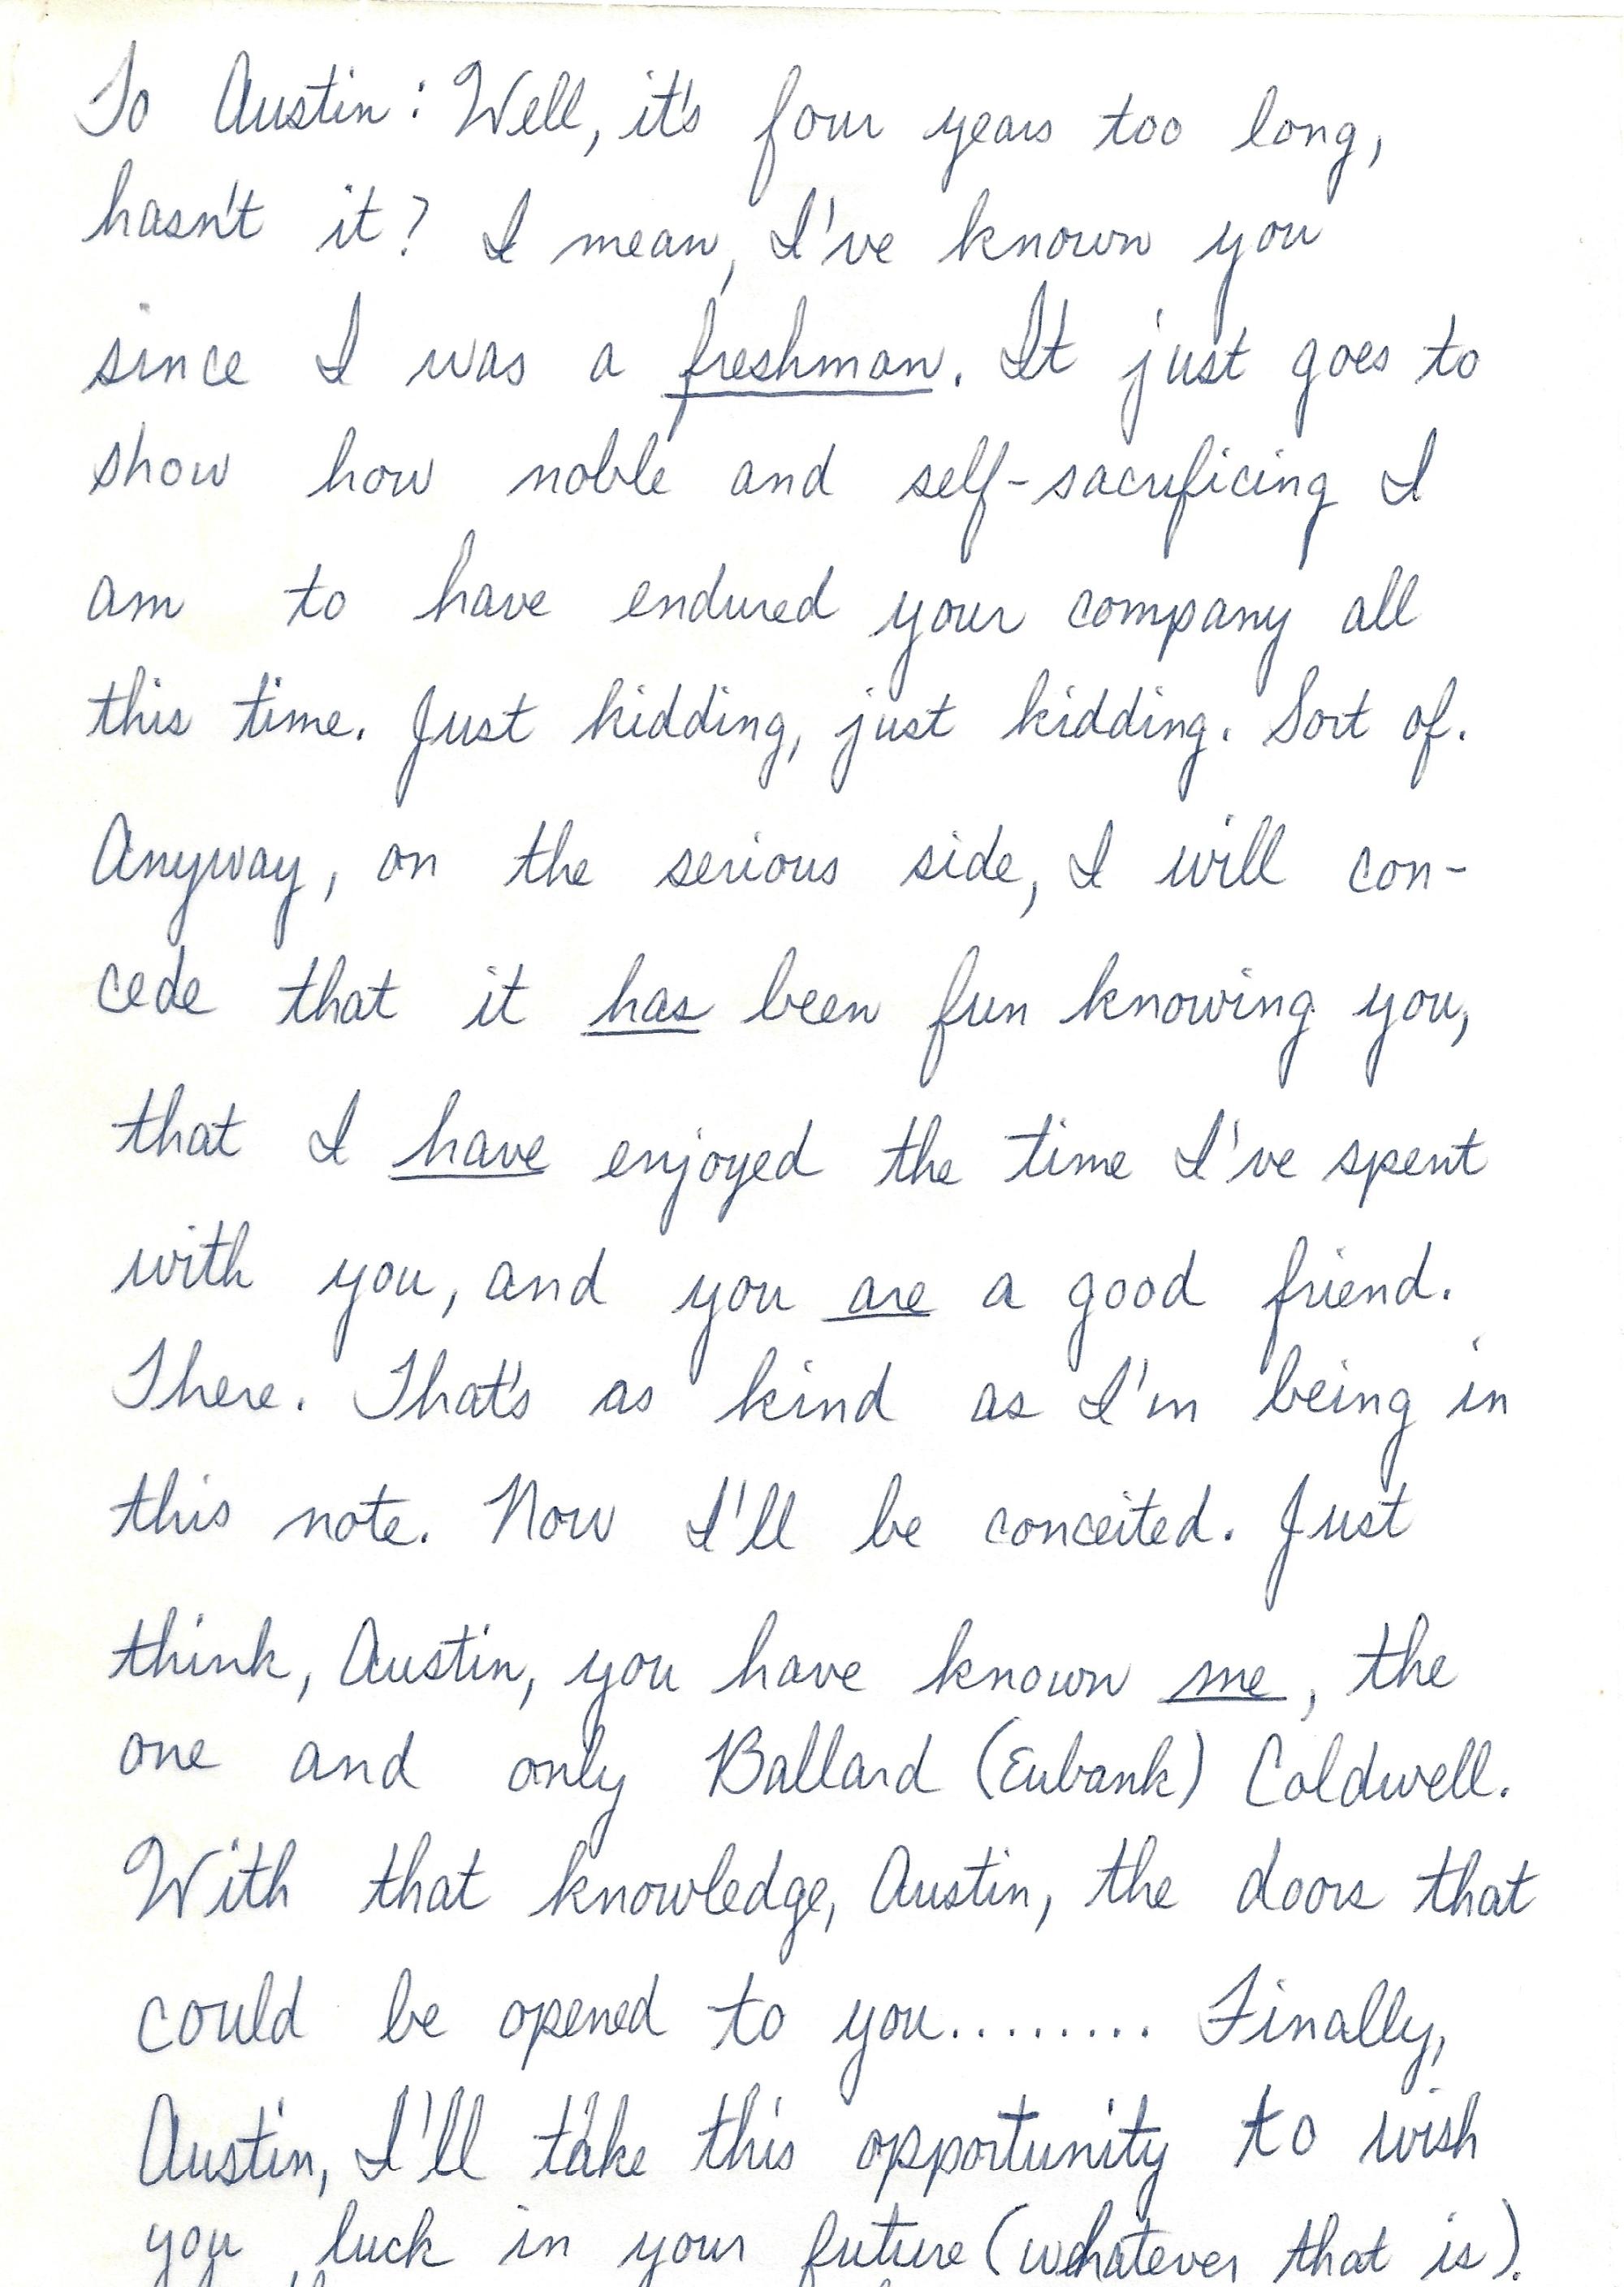 To Austin: Well, it's four years too long,
hasn't it? I mean, I've known you
since I was a freshman. It just goes to
show how noble and self-sacrificing I
am to have endured your company all
this time. Just kidding, just kidding. Sort of.
Anyway, on the serious side, I will con-
cede that it has been fun knowing you,
that I have enjoyed the time I've spent
with you, and you are a good friend.
There. That's as kind as I'm being in
this note. Now I'll be conceited. Just
think, Austin, you have known me, the
one and only Ballard (Eubank) Coldwell.
With that knowledge, Austin, the doors that
could be opened to you......... Finally,
Austin, I'll take this opportunity to wish
you luck in your future (whatever that is).